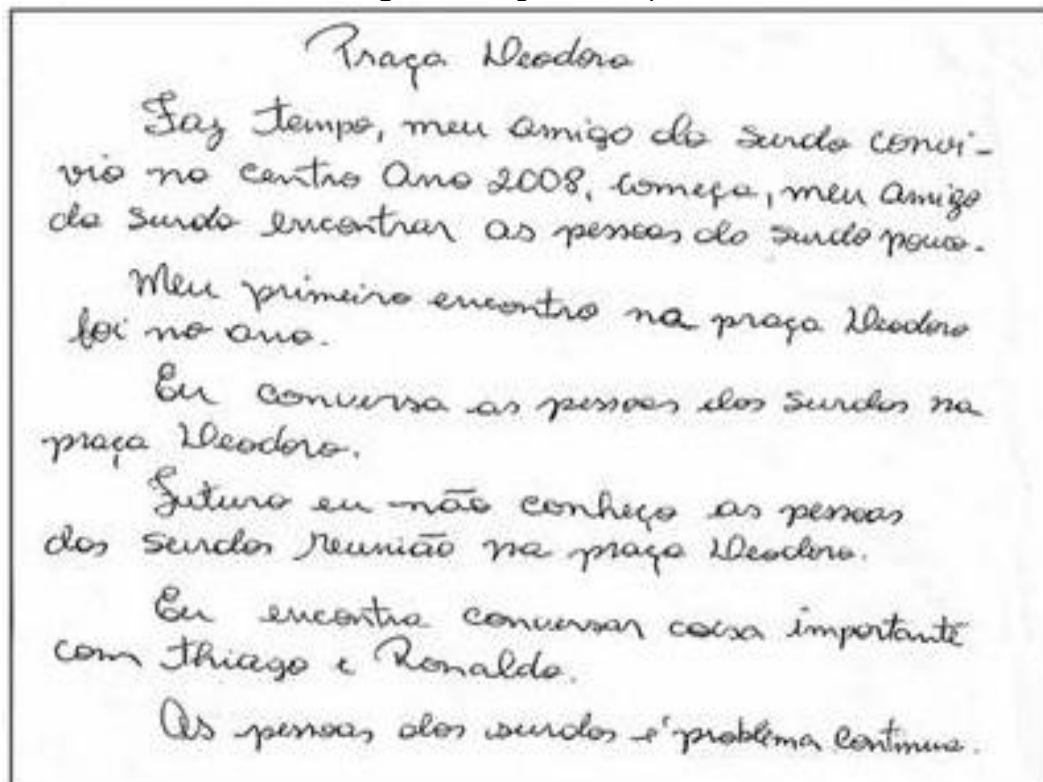 Praça Deodoro
Faz tempo, meu amigo do surdo convi-
vio no centro Ano 2008, começa, meu amigo
do surdo encontrar as pessoas do surdo pouco.
Meu primeiro encontro na praça Deodoro
foi no ano.
Eu conversa as pessoas dos surdos na
praça Deodoro.
Futuro eu não conheço as pessoas
dos surdos reunião na praça Deodoro.
Eu encontra conversar coisa importante
com Thiago e Ronaldo.
As pessoas dos surdos é problema continua.